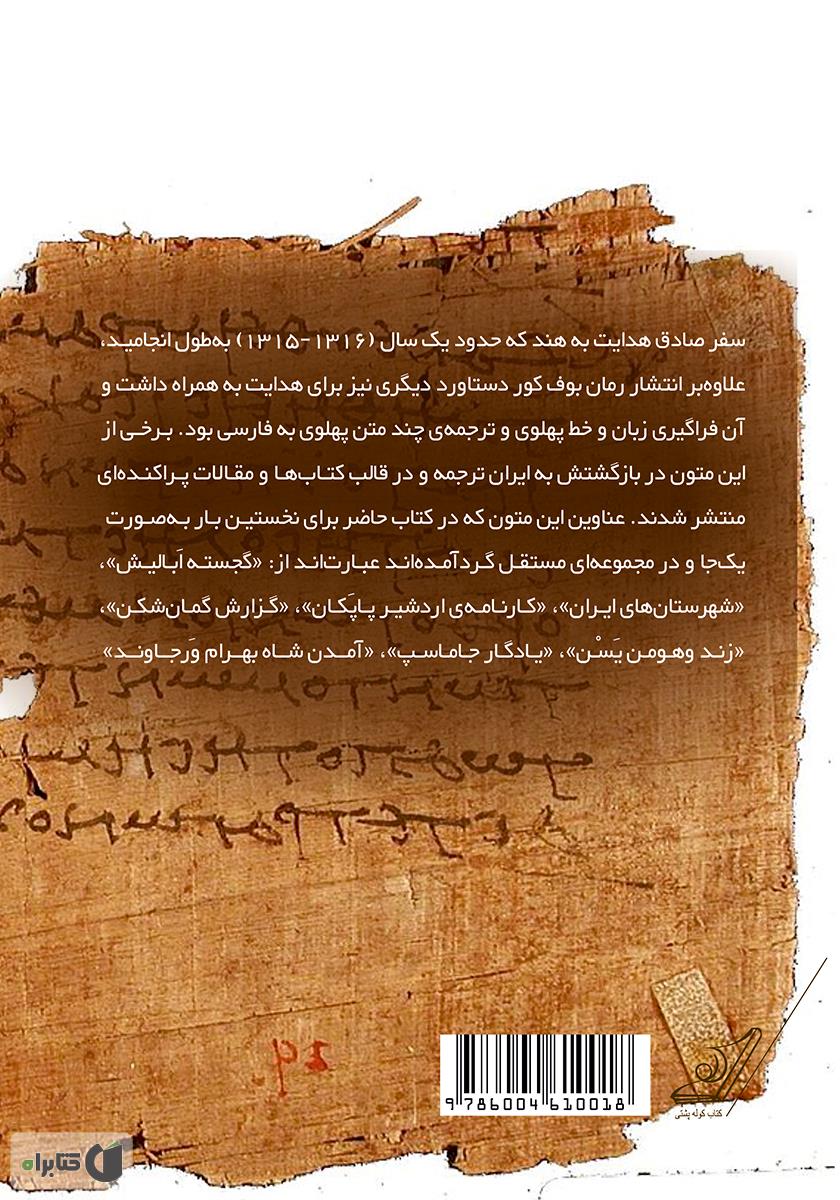 سفر صادق هدایت به هند که حدود یک سال (۱۳۱۶-۱۳۱۵) به‌طول انجامید،
علاوه‌بر انتشار رمان بوف کور دستاورد دیگری نیز برای هدایت به همراه داشت و
آن فراگیری زبان و خط پهلوی و ترجمه‌ی چند متن پهلوی به فارسی بود. برخی از
این متون در بازگشتش به ایران ترجمه و در قالب کتاب‌ها و مقالات پراکنده‌ای
منتشر شدند. عناوین این متون که در کتاب حاضر برای نخستین بار به‌صورت
یک‌جا و در مجموعه‌ای مستقل گردآمده‌اند عبارت‌اند از: «گجسته اَبالیش»،
«شهرستان‌های ایران»، «کارنامه‌ی اردشیر پاپَکان»، «گزارش گمان‌شکن»،
«زند وهومن یَسْن»، «یادگار جاماسپ»، «آمدن شاه بهرام وَرجاوند»
9 786004 610018
کتاب کوله پشتی
کتابراه